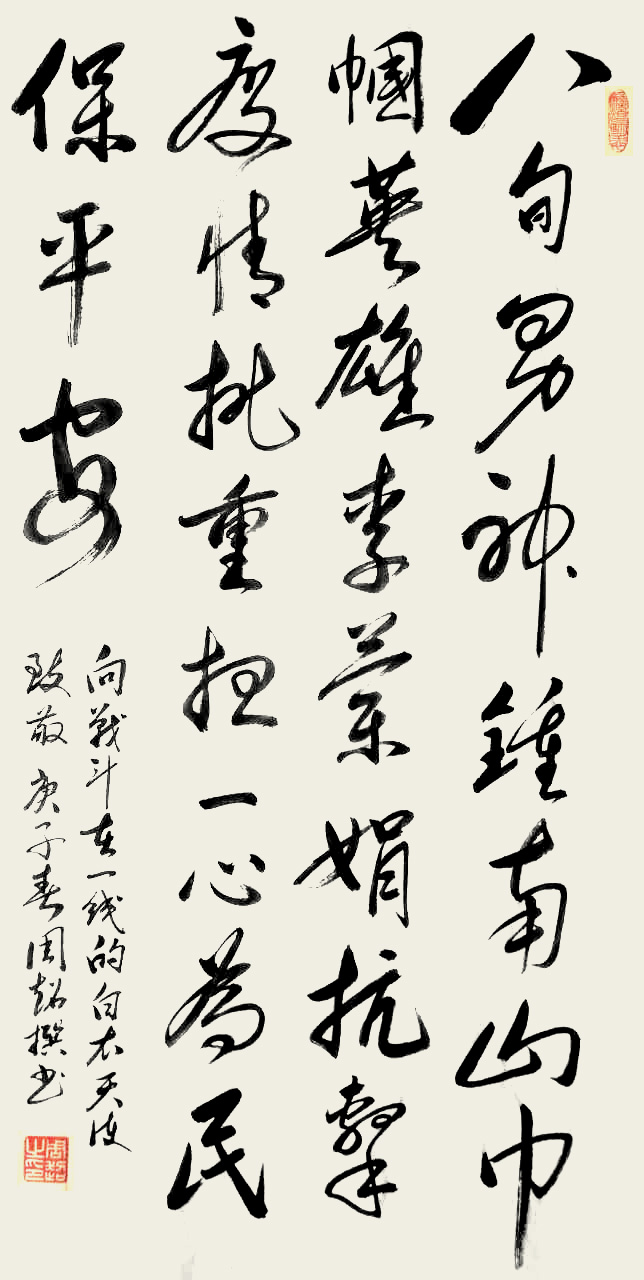 八旬男神鍾南山巾
幗英雄李蘭娟抗擊
疫情挑重担一心為民
保平安
向戰斗在一线的白衣天使
致敬庚子春周超撰书